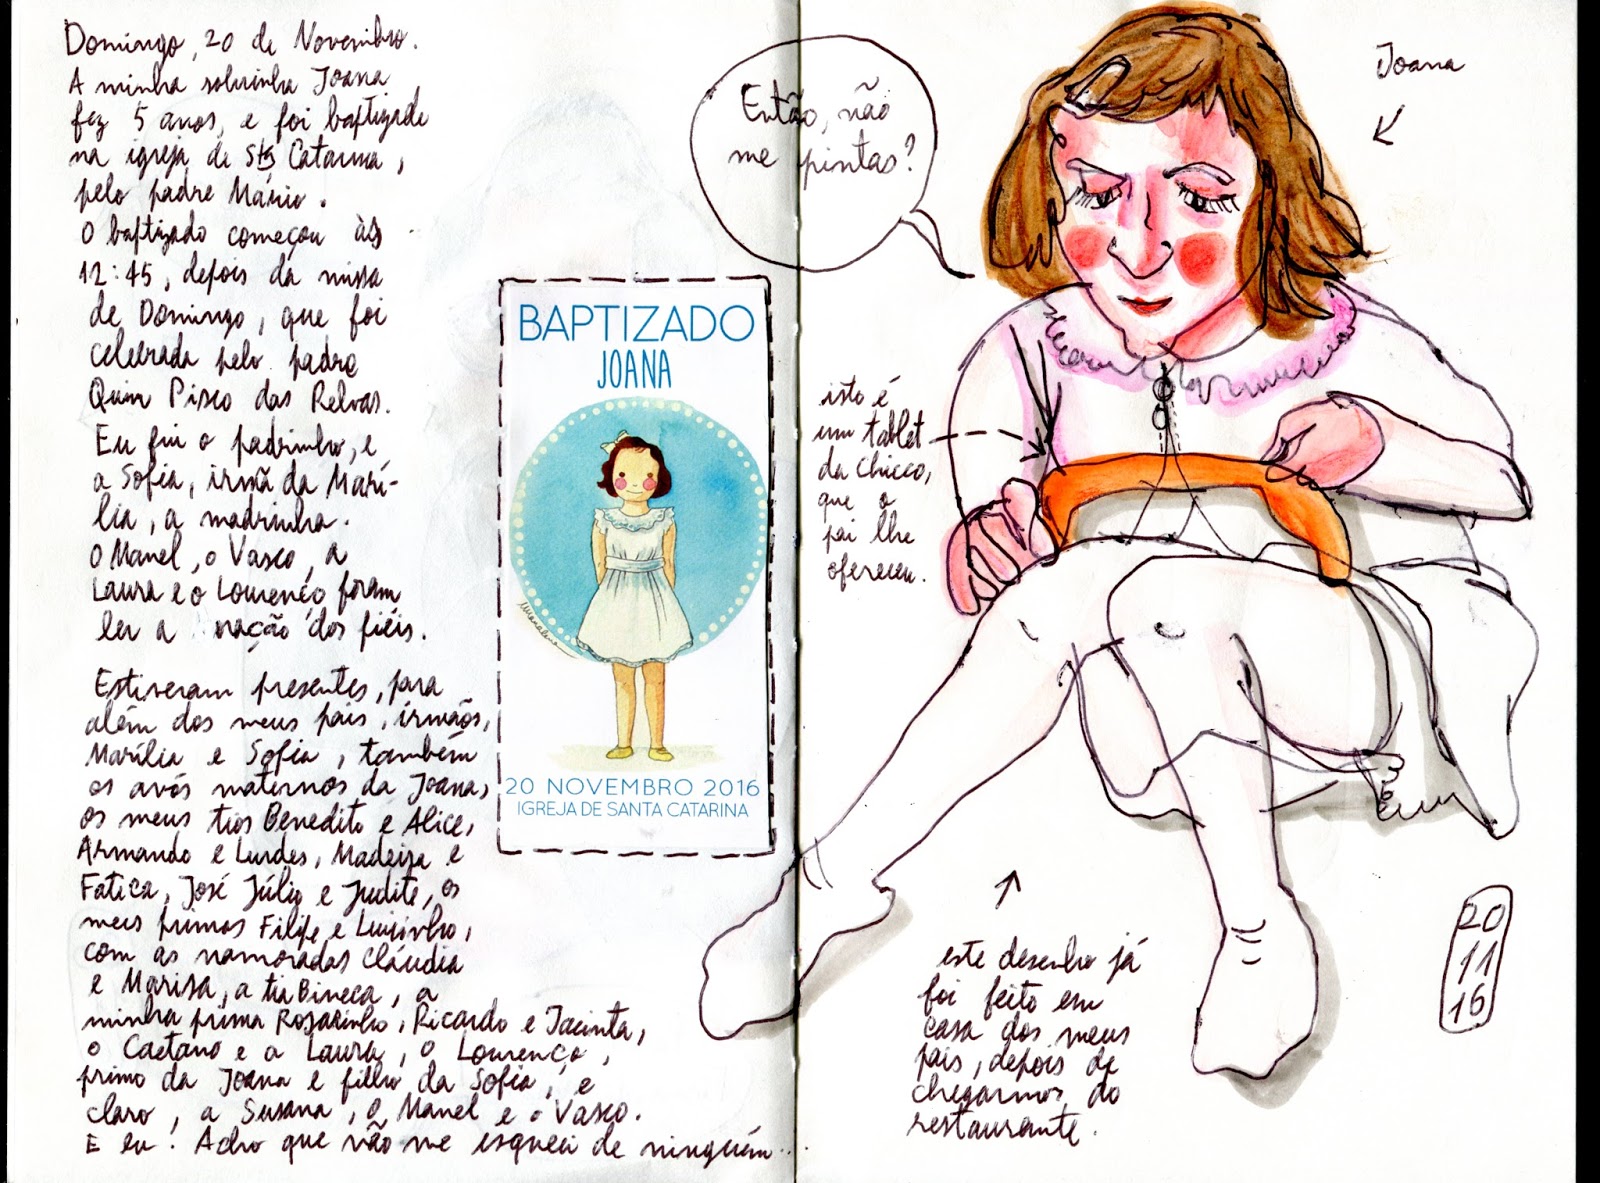 Domingo, 20 de Novembro.
A minha sobrinha Joana
fez 5 anos, e foi baptizada
na igreja de Sta Catarina,
pelo padre Mário.
O baptizado começou às
12:45, depois da missa
de Domingo, que foi
celebrada pelo padre
Quim Pisco das Relvas.
Eu fui o padrinho, e
a Sofia, irmã da Marí-
lia, a madrinha.
O Manel, o Vasco, a
Laura e o Lourenço foram
ler a ração dos fiéis.
Estiveram presentes, para
além dos meus pais, irmãos,
Marília e Sofia, também
os avós maternos da Joana,
os meus tios Benedito e Alice,
Armando e Lurdes, Madeira e
Fatica, José Júlio e Judite, os
meus primos Filipe e Luisinho,
com as namoradas Cláudia
e Marisa, a tia Bineca, a
minha prima Rosarinho, Ricardo e Jacinta,
o Caetano e a Laura, o Lourenço,
primo da Joana e filho da Sofia, e
claro, a Susana, o Manel e o Vasco.
E eu! Acho que não me esqueci de ninguém...
BAPTIZADO
JOANA
20 NOVEMBRO 2016
IGREJA DE SANTA CATARINA
Então, não
me pintas?
Joana
isto é
um tablet
da Chicco,
que o
pai lhe
ofereceu.
este desenho já
foi feito em
casa dos meus
pais, depois de
chegarmos do
restaurante.
20
11
16